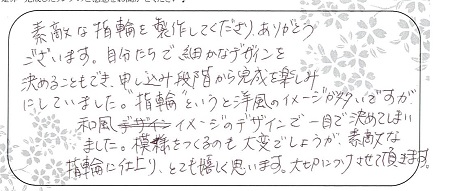 素敵な指輪を製作してくださり、ありがとう
ございます。自分たちで細かなデザインを
決めることもでき、申し込み段階から完成を楽しみ
にしていました。"指輪"というと洋風のイメージが多いですが、
和風イメージのデザインで一目で決めてしまい
ました。模様をつくるのも大変でしょうが、素敵な
指輪に仕上り、とても嬉しく思います。大切につけさせて頂きます。